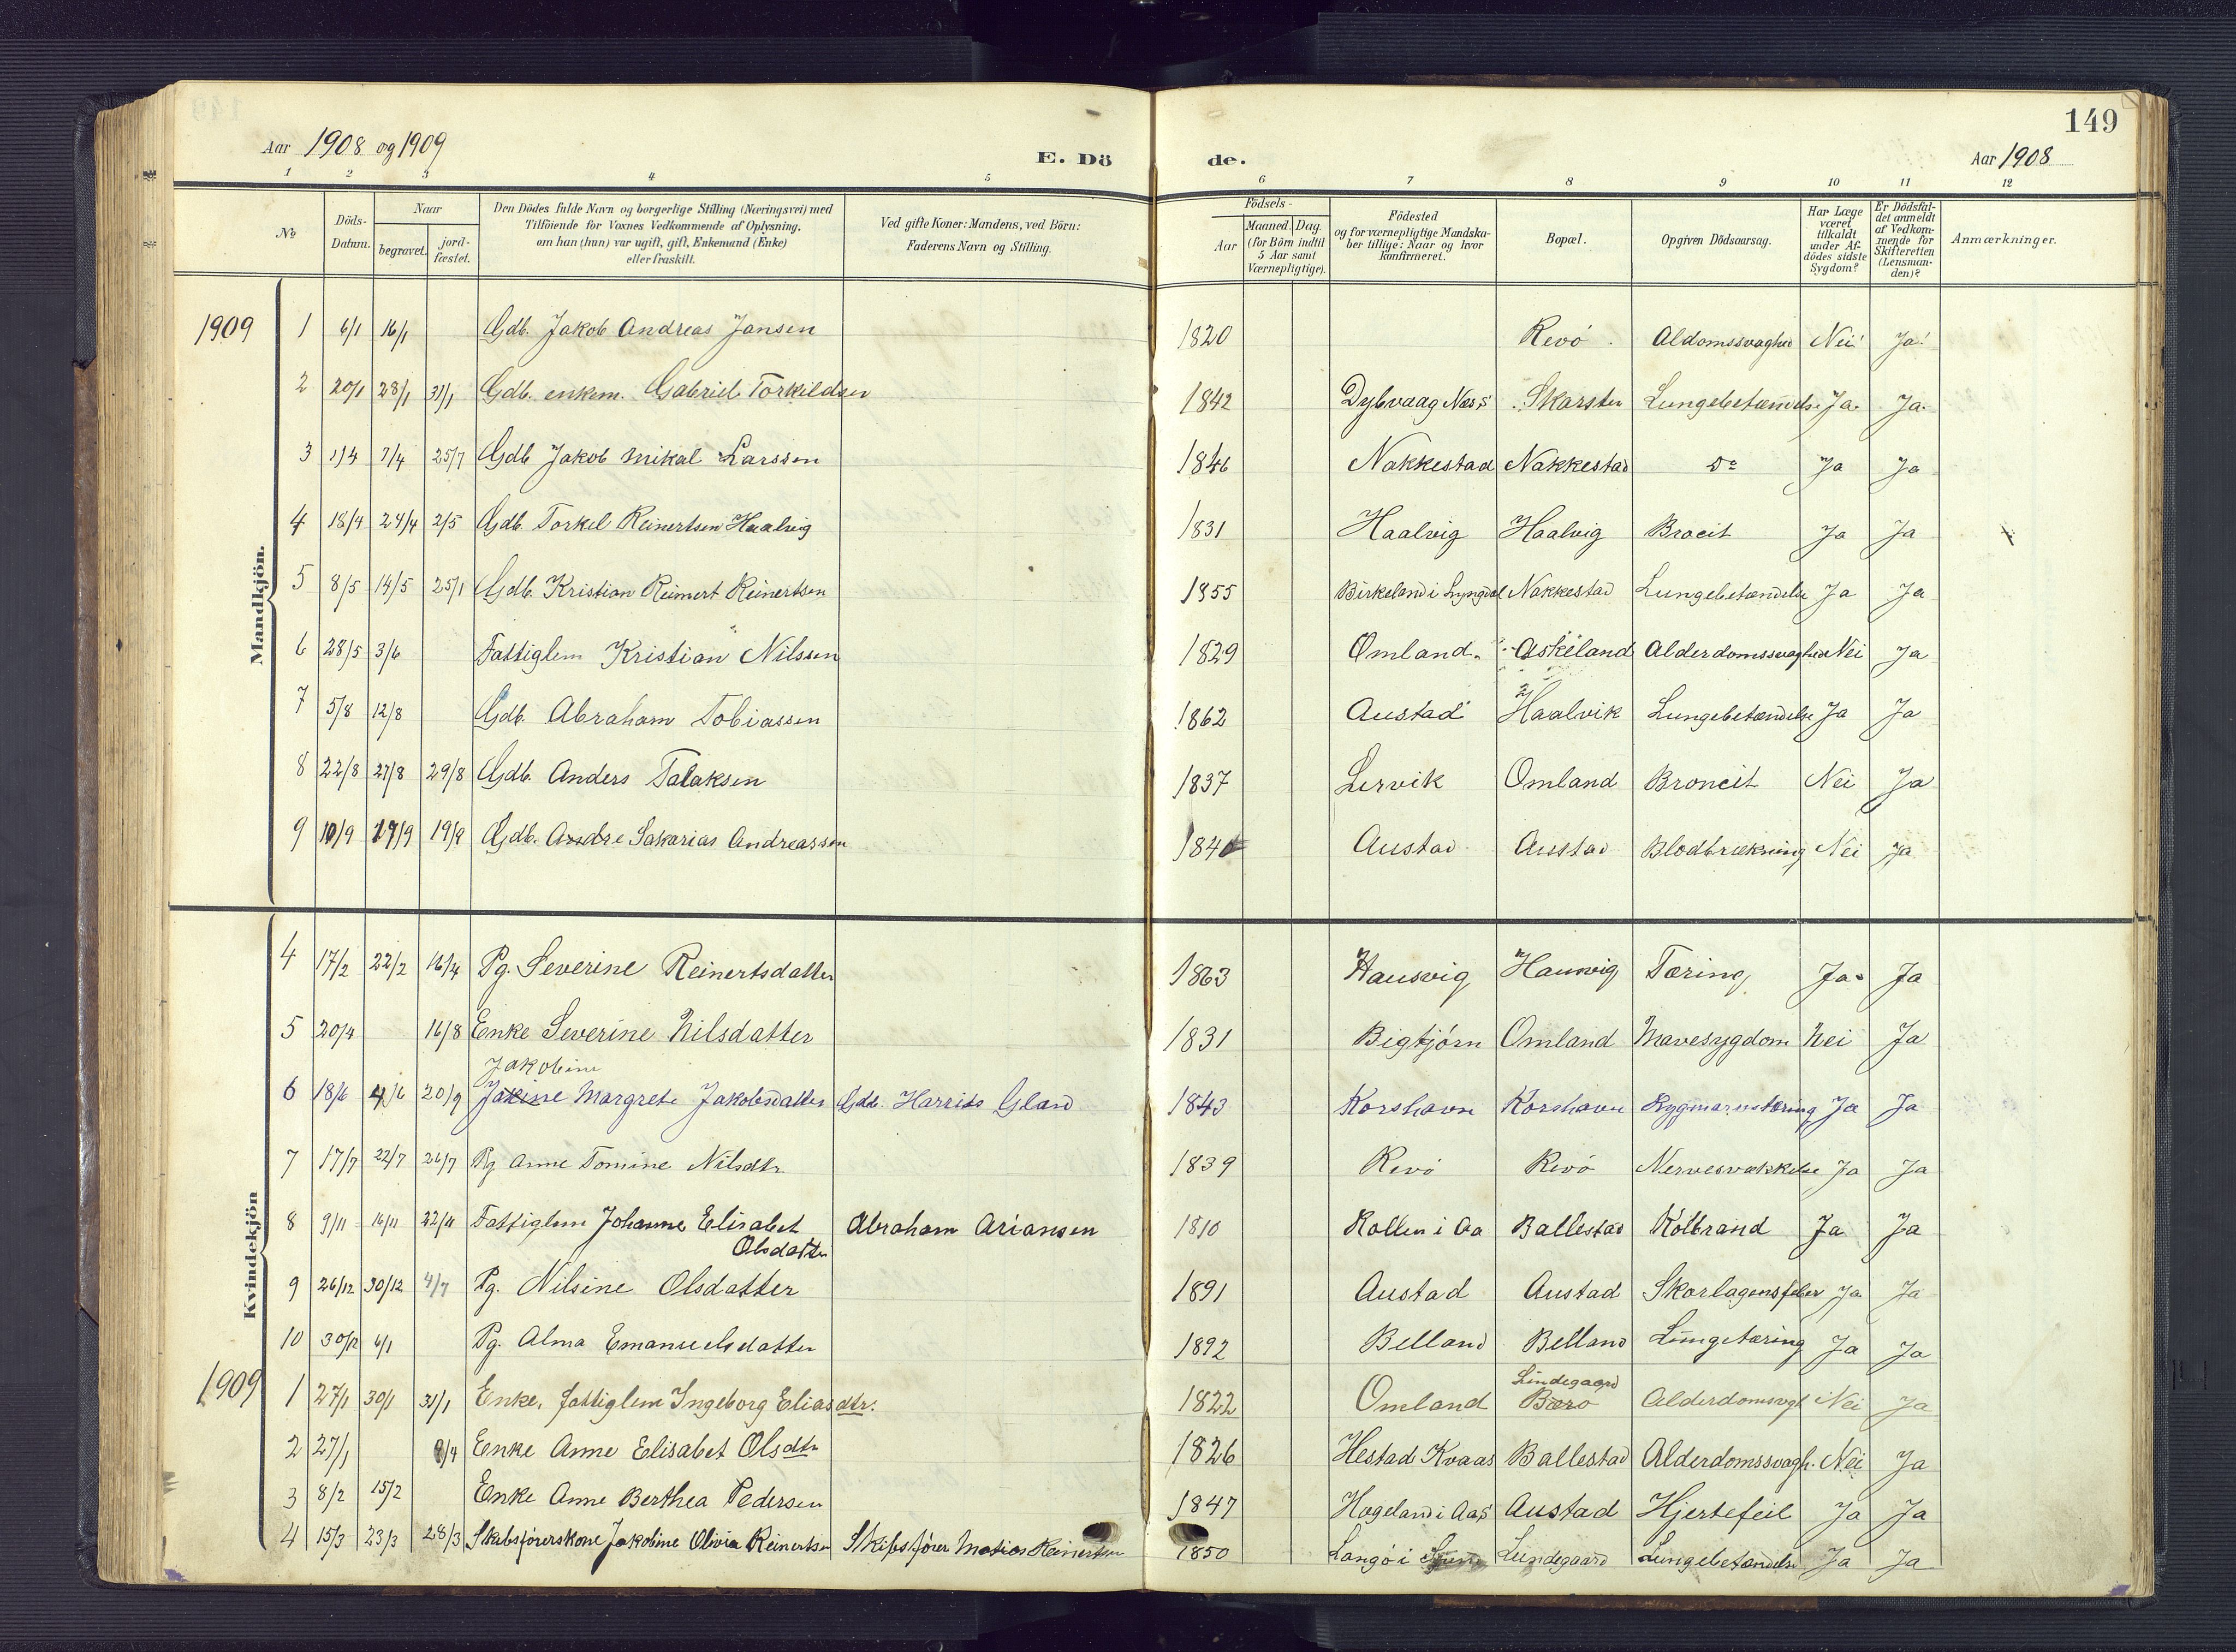 149
Aar 1908 og 1909
E. Dö de.
Aar 1908
1 2 3 4 5 6 7 8 9 10 11 12
No
Döds-Datum.
Naar
begravet.
jord-fæstet.
Den Dödes fulde Navn og borgerlige Stilling (Næringsvei) med
Tilföiende for Voxnes Vedkommende af Oplysning,
om han (hun) var ugift, gift, Enkemand (Enke)
eller fraskilt.
Ved gifte Koner: Mandens, ved Börn:
Faderens Navn og Stilling.
Födsels-
Aar
Maaned. Dag.
(for Börn indtil
5 Aar samt
Værnepligtige).
Födested
og for værnepligtige Mandska-
ber tillige: Naar og hvor
konfirmeret.
Bopæl.
Opgiven Dödsaarsag.
Har Læge
været
tilkaldt
under Af-
dödes sidste
Sygdom?
Er Dödsfal-
det anmeldt
af Vedkom-
mende for
Skifteretten
(Lensman-
den)?
Anmærkninger.
Mandkjön.
1909 1 6/1 16/1 Gdb. Jakob Andreas Jansen 1820 Revö Aldomssvaghed Nei Ja
2 20/1 28/1 31/1 Gdb. enkem. Gabriel Torkildsen 1842 Dybvaag Næs S Skarsten Lungebetændelse Ja Ja
3 1/4 7/4 25/7 Gdb Jakob Mikal Larssen 1846 Nakkestad Nakkestad Do Ja Ja
4 18/4 24/4 2/5 Gdb. Torkel Reinertsen Haalvig 1831 Haalvig Haalvig Brocit Ja Ja
5 8/5 14/5 25/1 Gdb. Kristian Reinert Reinertsen 1855 Birkeland i Lyngdal Nakkestad Lungebetændelse Ja Ja
6 28/5 3/6 Fattiglem Kristian Nilssen 1829 Omland Askeland Alderdomssvaghed Nei Ja
7 5/8 12/8 Gdb. Abraham Tobiassen 1862 Austad Haalvik Lungebetændelse Ja Ja
8 22/8 27/8 29/8 Gdb. Anders Talaksen 1837 Lervik Omland Broncit Nei Ja
9 10/9 17/9 19/9 Gdb. Andre Sakarias Andreassen 1840 Austad Austad Blodbrækning Nei Ja
Kvindekjön
4 17/2 22/2 16/4 Pg. Severine Reinertsdatter 1863 Hausvig Hausvig Tæring Ja Ja
5 20/4 16/8 Enke Severine Nilsdatter 1831 Bigtjörn Omland Mavesygdom Nei Ja
Jakobine
6 18/6 4/6 20/9 Jakine Margrete Jakobsdatter Gdb. Harrids Glad 1843 Korshavn Korshavn Rygmarvstæring Ja Ja
7 17/7 22/7 26/7 Pg Anne Tomine Nilsdtr. 1839 Revö Revö Nervesvækkelse Ja Ja
8 9/11 16/11 22/11 Fattiglem Johanne Elisabet Abraham Ariansen 1810 Rollen i Aa Ballestad Kolbrand Ja Ja
Olsdatter
9 26/12 30/12 4/7 Pg. Nilsine Olsdatter 1891 Austad Austad Skarlagensfeber Ja Ja
10 30/12 6/1 Pg. Alma Emanuelsdatter 1892 Belland Belland Lungetæring Ja Ja
Lindegaard
1909 1 27/1 30/1 31/1 Enke, fattiglem Ingeborg Eliasdtr. 1822 Omland Bærø Alderdomsvgt Nei Ja
2 27/1 8/4 Enke Anne Elisabet Olsdtr 1826 Hestad Kvaas Ballestad Alderdomssvagh. Nei Ja
3 8/2 15/2 Enke Anne Berthea Pedersen 1847 Hægeland i Aas Austad Hjertefeil Ja Ja
4 15/3 23/3 28/3 Skibsförerskone Jakobine Olivia Reinertsen Skibsförer Matias Reinertsen 1850 Langö i Lundegaard Lungebetændelse Ja Ja